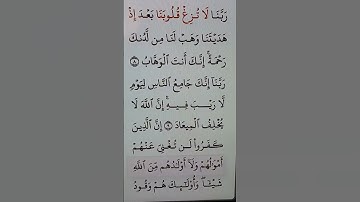 رَبَّنَا لَا تُزِغْ قُلُوبَنَا بَعْدَ إِذْ
هَدَيْتَنَا وَهَبْ لَنَا مِن لَّدُنكَ
رَحْمَةً إِنَّكَ أَنتَ الْوَهَّابُ ٨
رَبَّنَا إِنَّكَ جَامِعُ النَّاسِ لِيَوْمٍ
لَّا رَيْبَ فِيهِ إِنَّ اللَّهَ لَا
يُخْلِفُ الْمِيعَادَ ٩ إِنَّ الَّذِينَ
كَفَرُوا لَن تُغْنِيَ عَنْهُمْ
أَمْوَالُهُمْ وَلَا أَوْلَادُهُم مِّنَ اللَّهِ
شَيْئًا وَأُولَٰئِكَ هُمْ وَقُودُ